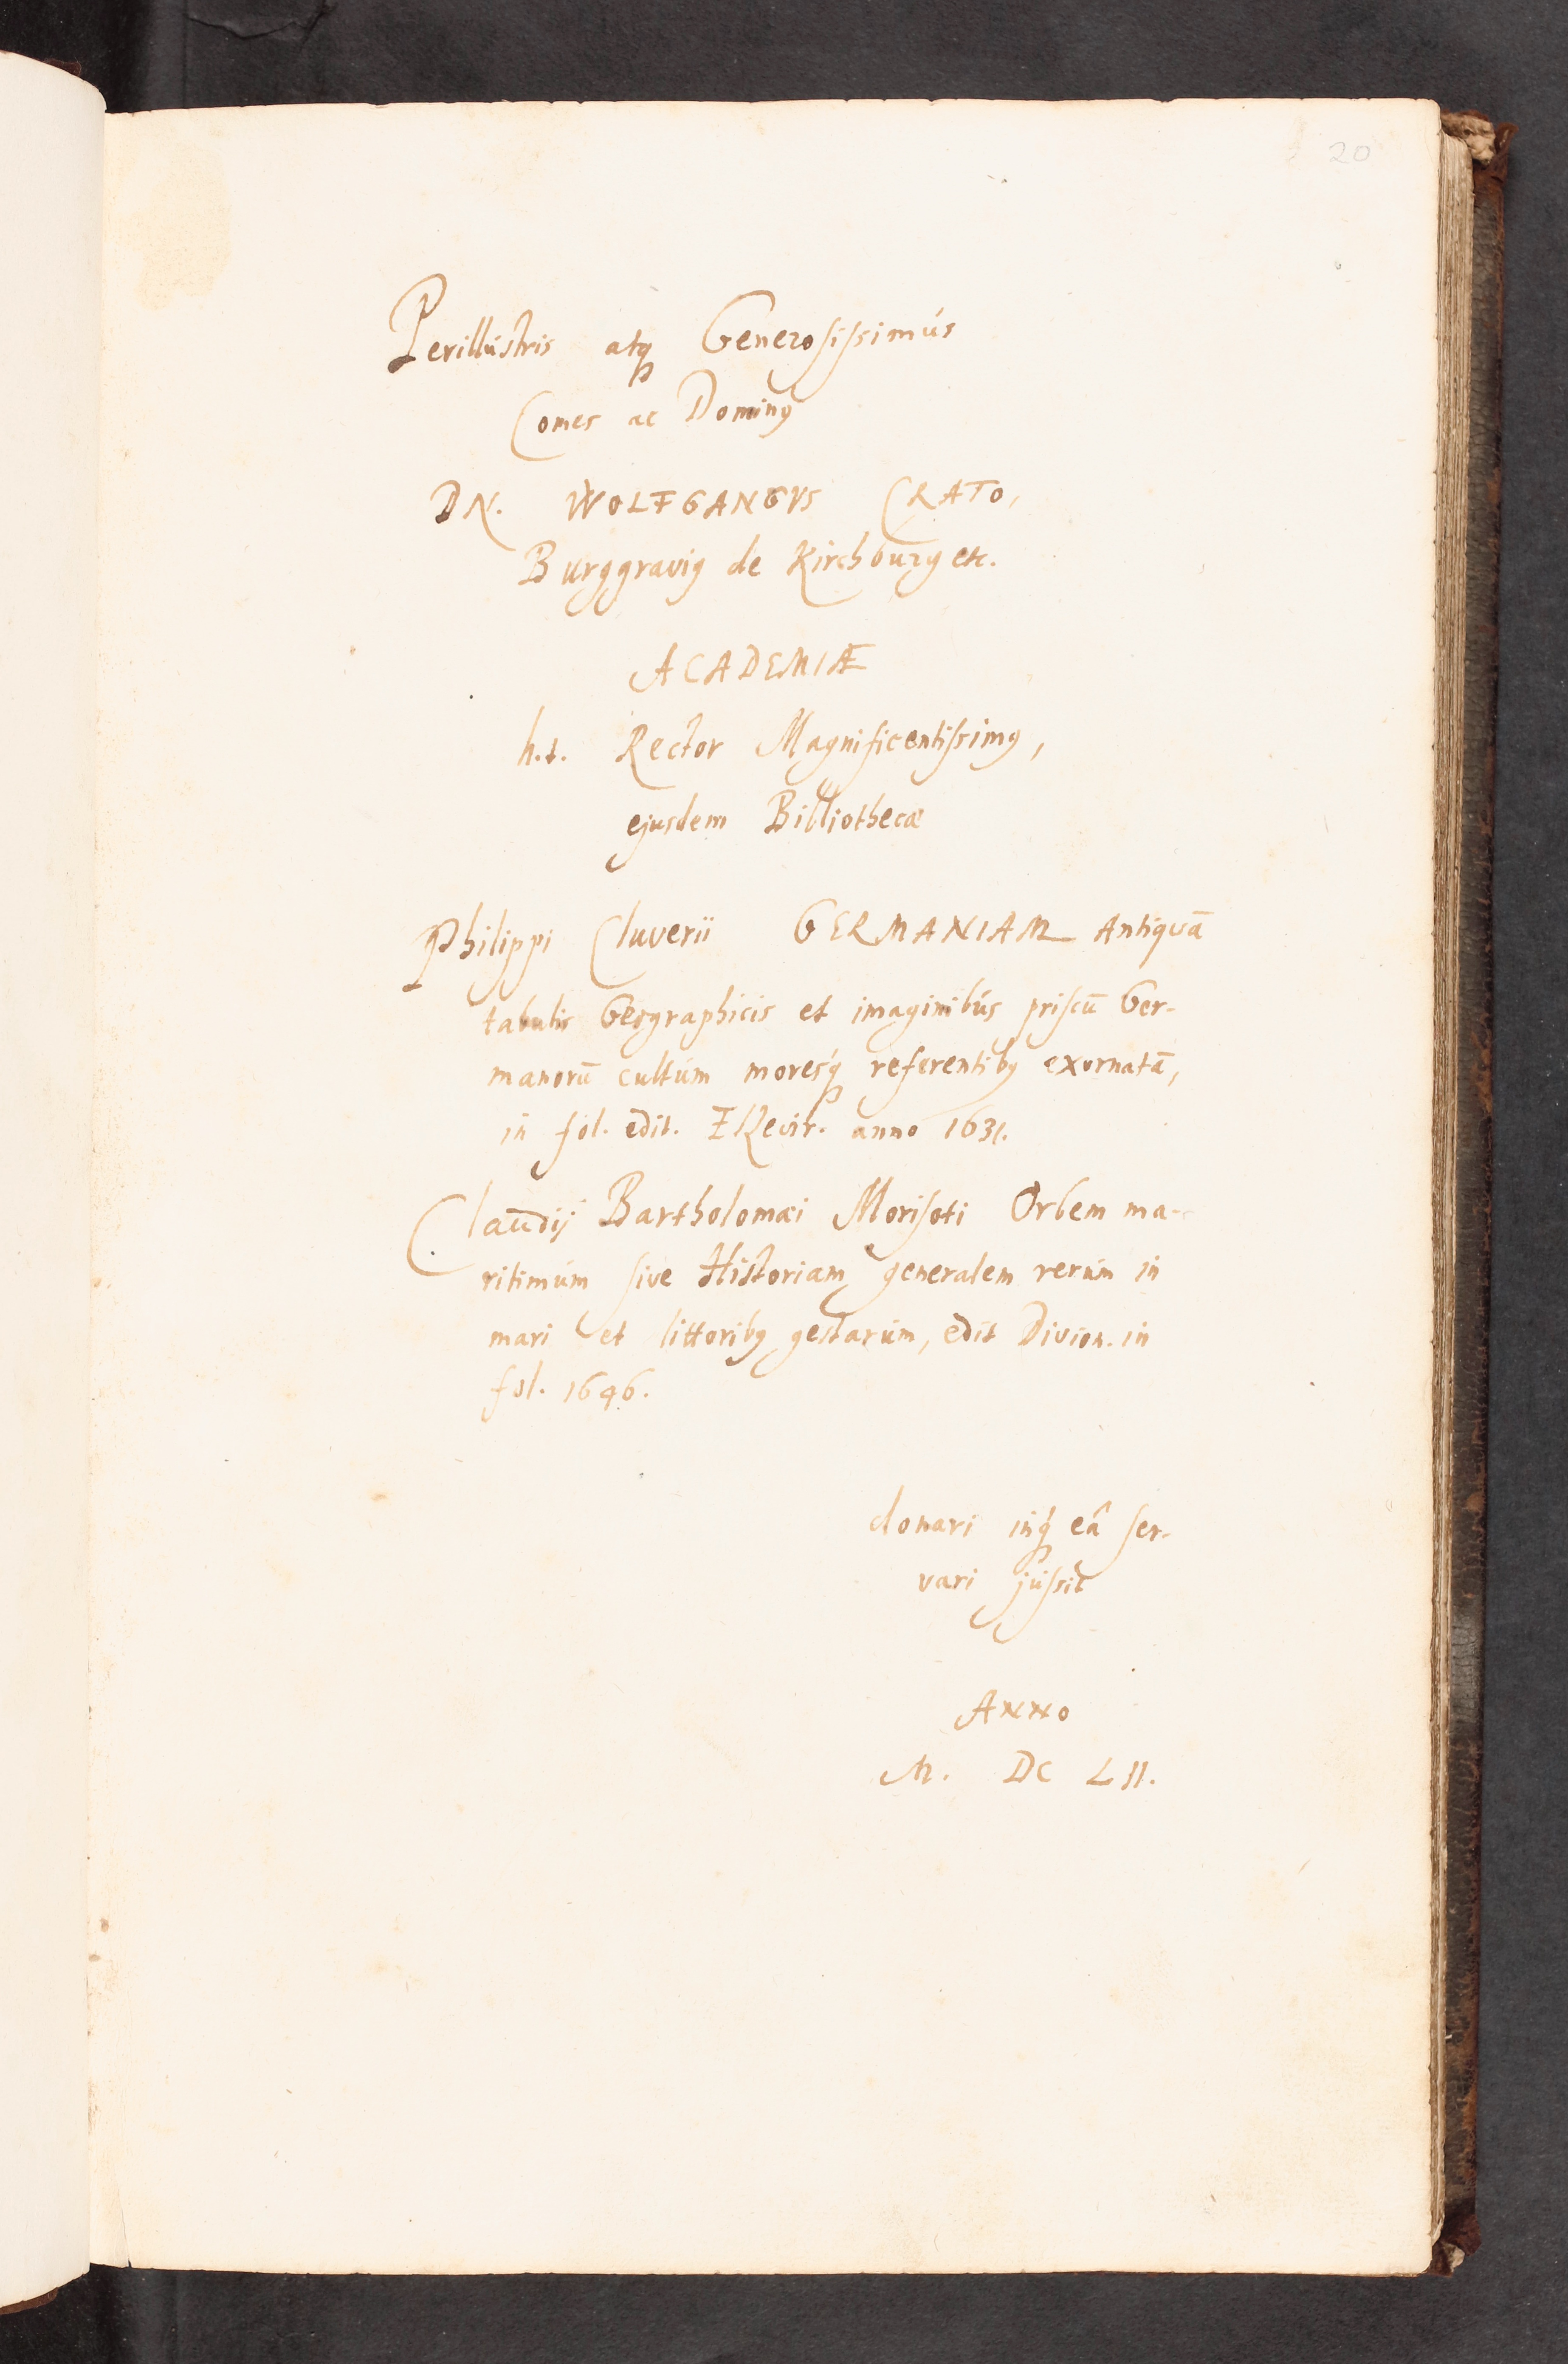 20
Perillustris atq Generosissimús
Comes ac Dominꝰ
DN. WOLFGANGVS CRATO,
Burggraviꝰ de Kirchburg etc.
ACADEMIÆ
h.t. Rector Magnificentissimꝰ,
ejusdem Bibliothecæ
Philippi Cluverii GERMANIAM Antiqvā
tabulis Geographicis et imaginibús priscū Ger-
manorū cultúm moresq́ referentibꝰ exornatā,
in fol. edit. Elzevir. anno 1631.
Claudij Bartholomæi Morisoti Orbem ma-
ritimúm sive Historiam generalem rerúm in
mari et littoribꝰ gestarúm, edit Divion. in
fol. 1646.
donari inq́ eâ ser-
vari jússit
ANNO
M. DC LII.